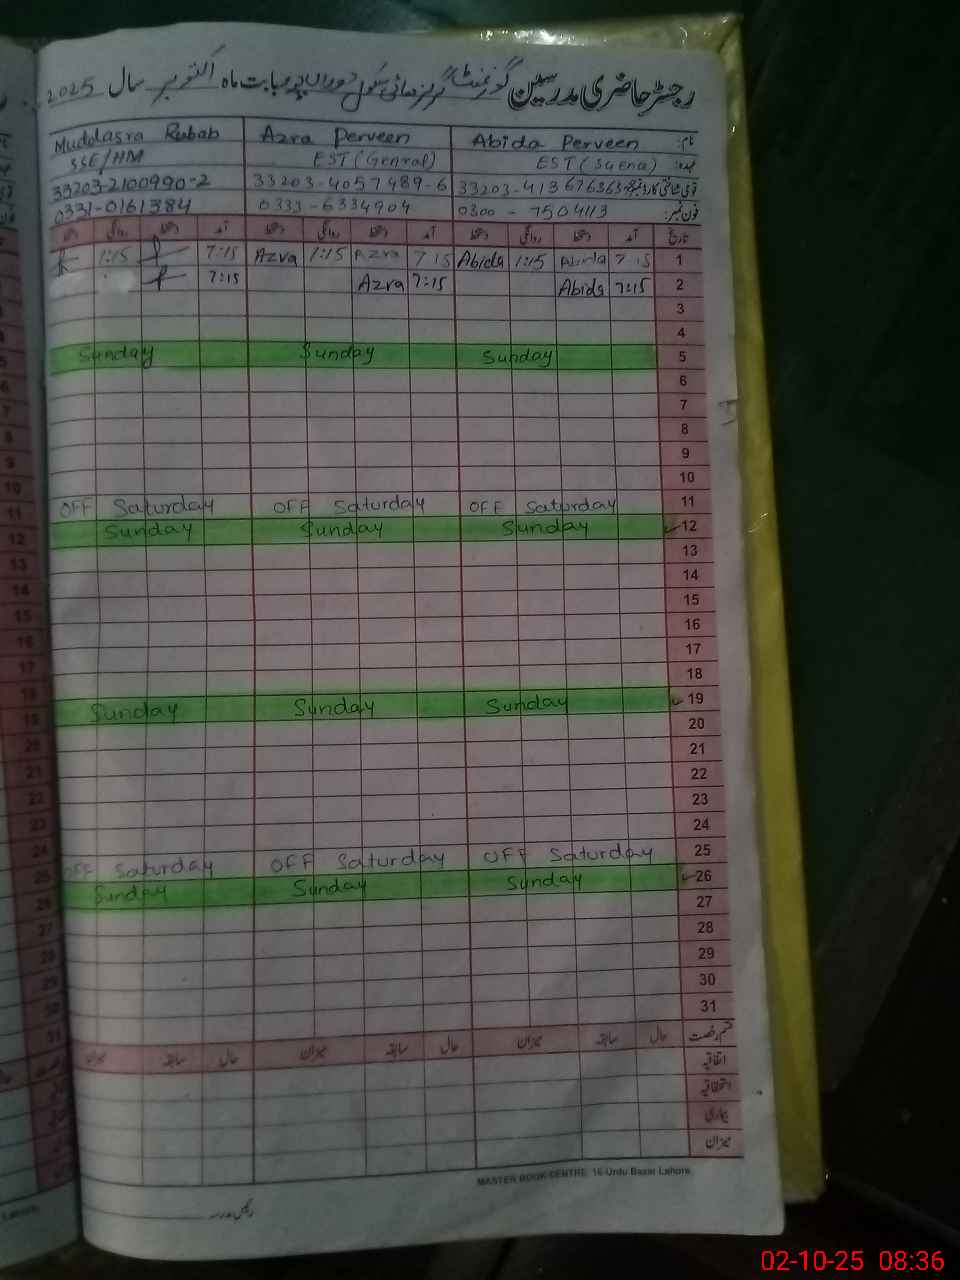 رجسٹر حاضری مدرسین گورنمنٹ گرلز ہائی سکول بابت ماہ اکتوبر سال 2025
نام: Abida Perveen Azra Perveen Muddasra Rubab
عہدہ: EST (Sciena) EST (Genral) SSE/HM
قومی شناختی کارڈ نمبر: 33203-4057489-6 33203-2100990-2
فون نمبر: 0300-7504113 0333-6334904 0331-0161384
تاریخ آمد دستخط روانگی دستخط آمد دستخط روانگی دستخط آمد دستخط روانگی دستخط
1 7:15 Abida 1:15 Abida 7:15 Azra 1:15 Azra 7:15 1:15
2 7:15 Abida 7:15 Azra 7:15
3
4
5 Sunday Sunday Sunday
6
7
8
9
10
11 OFF Saturday OFF Saturday OFF Saturday
12 Sunday Sunday Sunday
13
14
15
16
17
18
19 Sunday Sunday Sunday
20
21
22
23
24
25 OFF Saturday OFF Saturday OFF Saturday
26 Sunday Sunday Sunday
27
28
29
30
31
قسم رخصت حال سابقہ میزان حال سابقہ میزان حال سابقہ میزان
اتفاقیہ
استحقاقیہ
بیماری
میزان
MASTER BOOK CENTRE, 16-Urdu Bazar Lahore.
رئیس مدرسہ
02-10-25 08:36